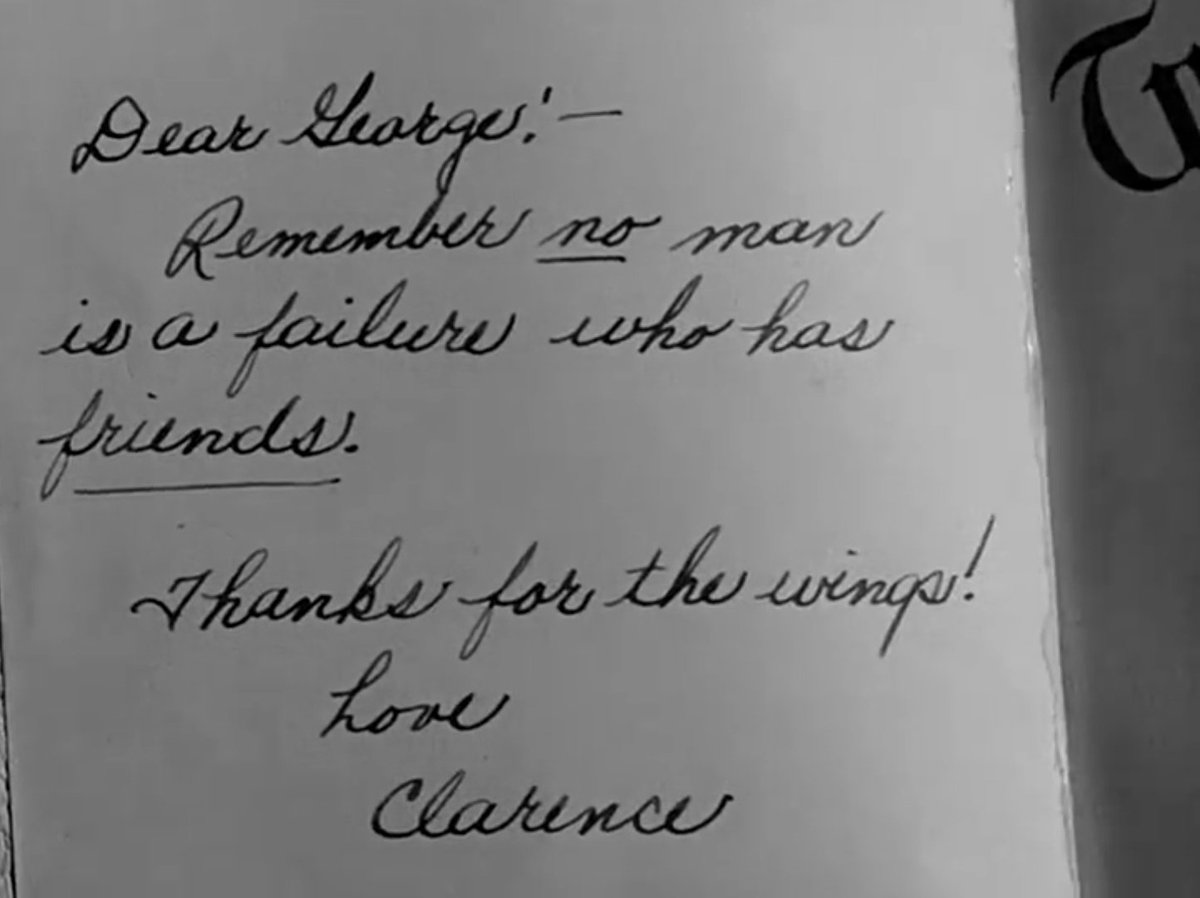 Dear George!—
Remember no man
is a failure who has
friends.
Thanks for the wings!
Love
Clarence